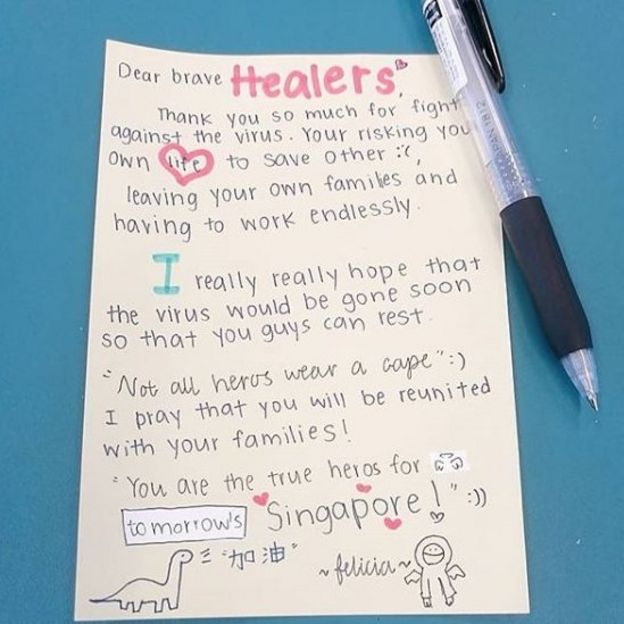 Dear brave Healers,
Thank you so much for fight
against the virus. Your risking you
own life to save other :'(,
leaving your own families and
having to work endlessly.
I really really hope that
the virus would be gone soon
so that you guys can rest.
"Not all heros wear a cape" :)
I pray that you will be reunited
with your families!
"You are the true heros for
tomorrow's Singapore!" :))
"加油" ~felicia~
JAPAN 1812